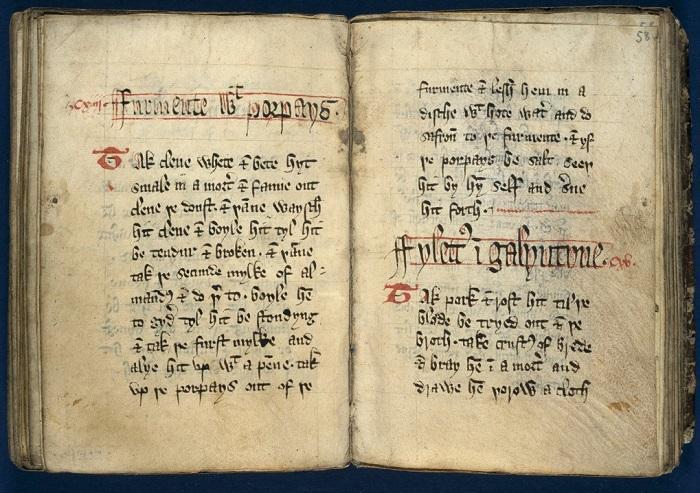 .cxiii. Furmente wt porpays.
Tak clene whete & bete hyt
smale in a mort & fanne out
clene þe doust. & þanne waysch
hit clene & boyle hit tyl hit
be tendur & broken. & þanne
tak þe secunde mylke of al-
mandes & do þer to. boyle hem
to gydr tyl hit be stondyng
& tak þe furst mylke and
alye hit vp wt a penne. tak
vp þe porpays out of þe
58
furmente & lesh hem in a
dische wt hote watr and do
safron to þe furmente. & yf
þe porpays be salt seeþ
hit by hym self and serue
hit forth.
Fylett ī galyntyne. cxv.
Tak pork & rost hit til þe
blode be tryed out & þe
broth. take crustes of brede
& bray hem ī a mortr and
drawe hem þorow a cloth